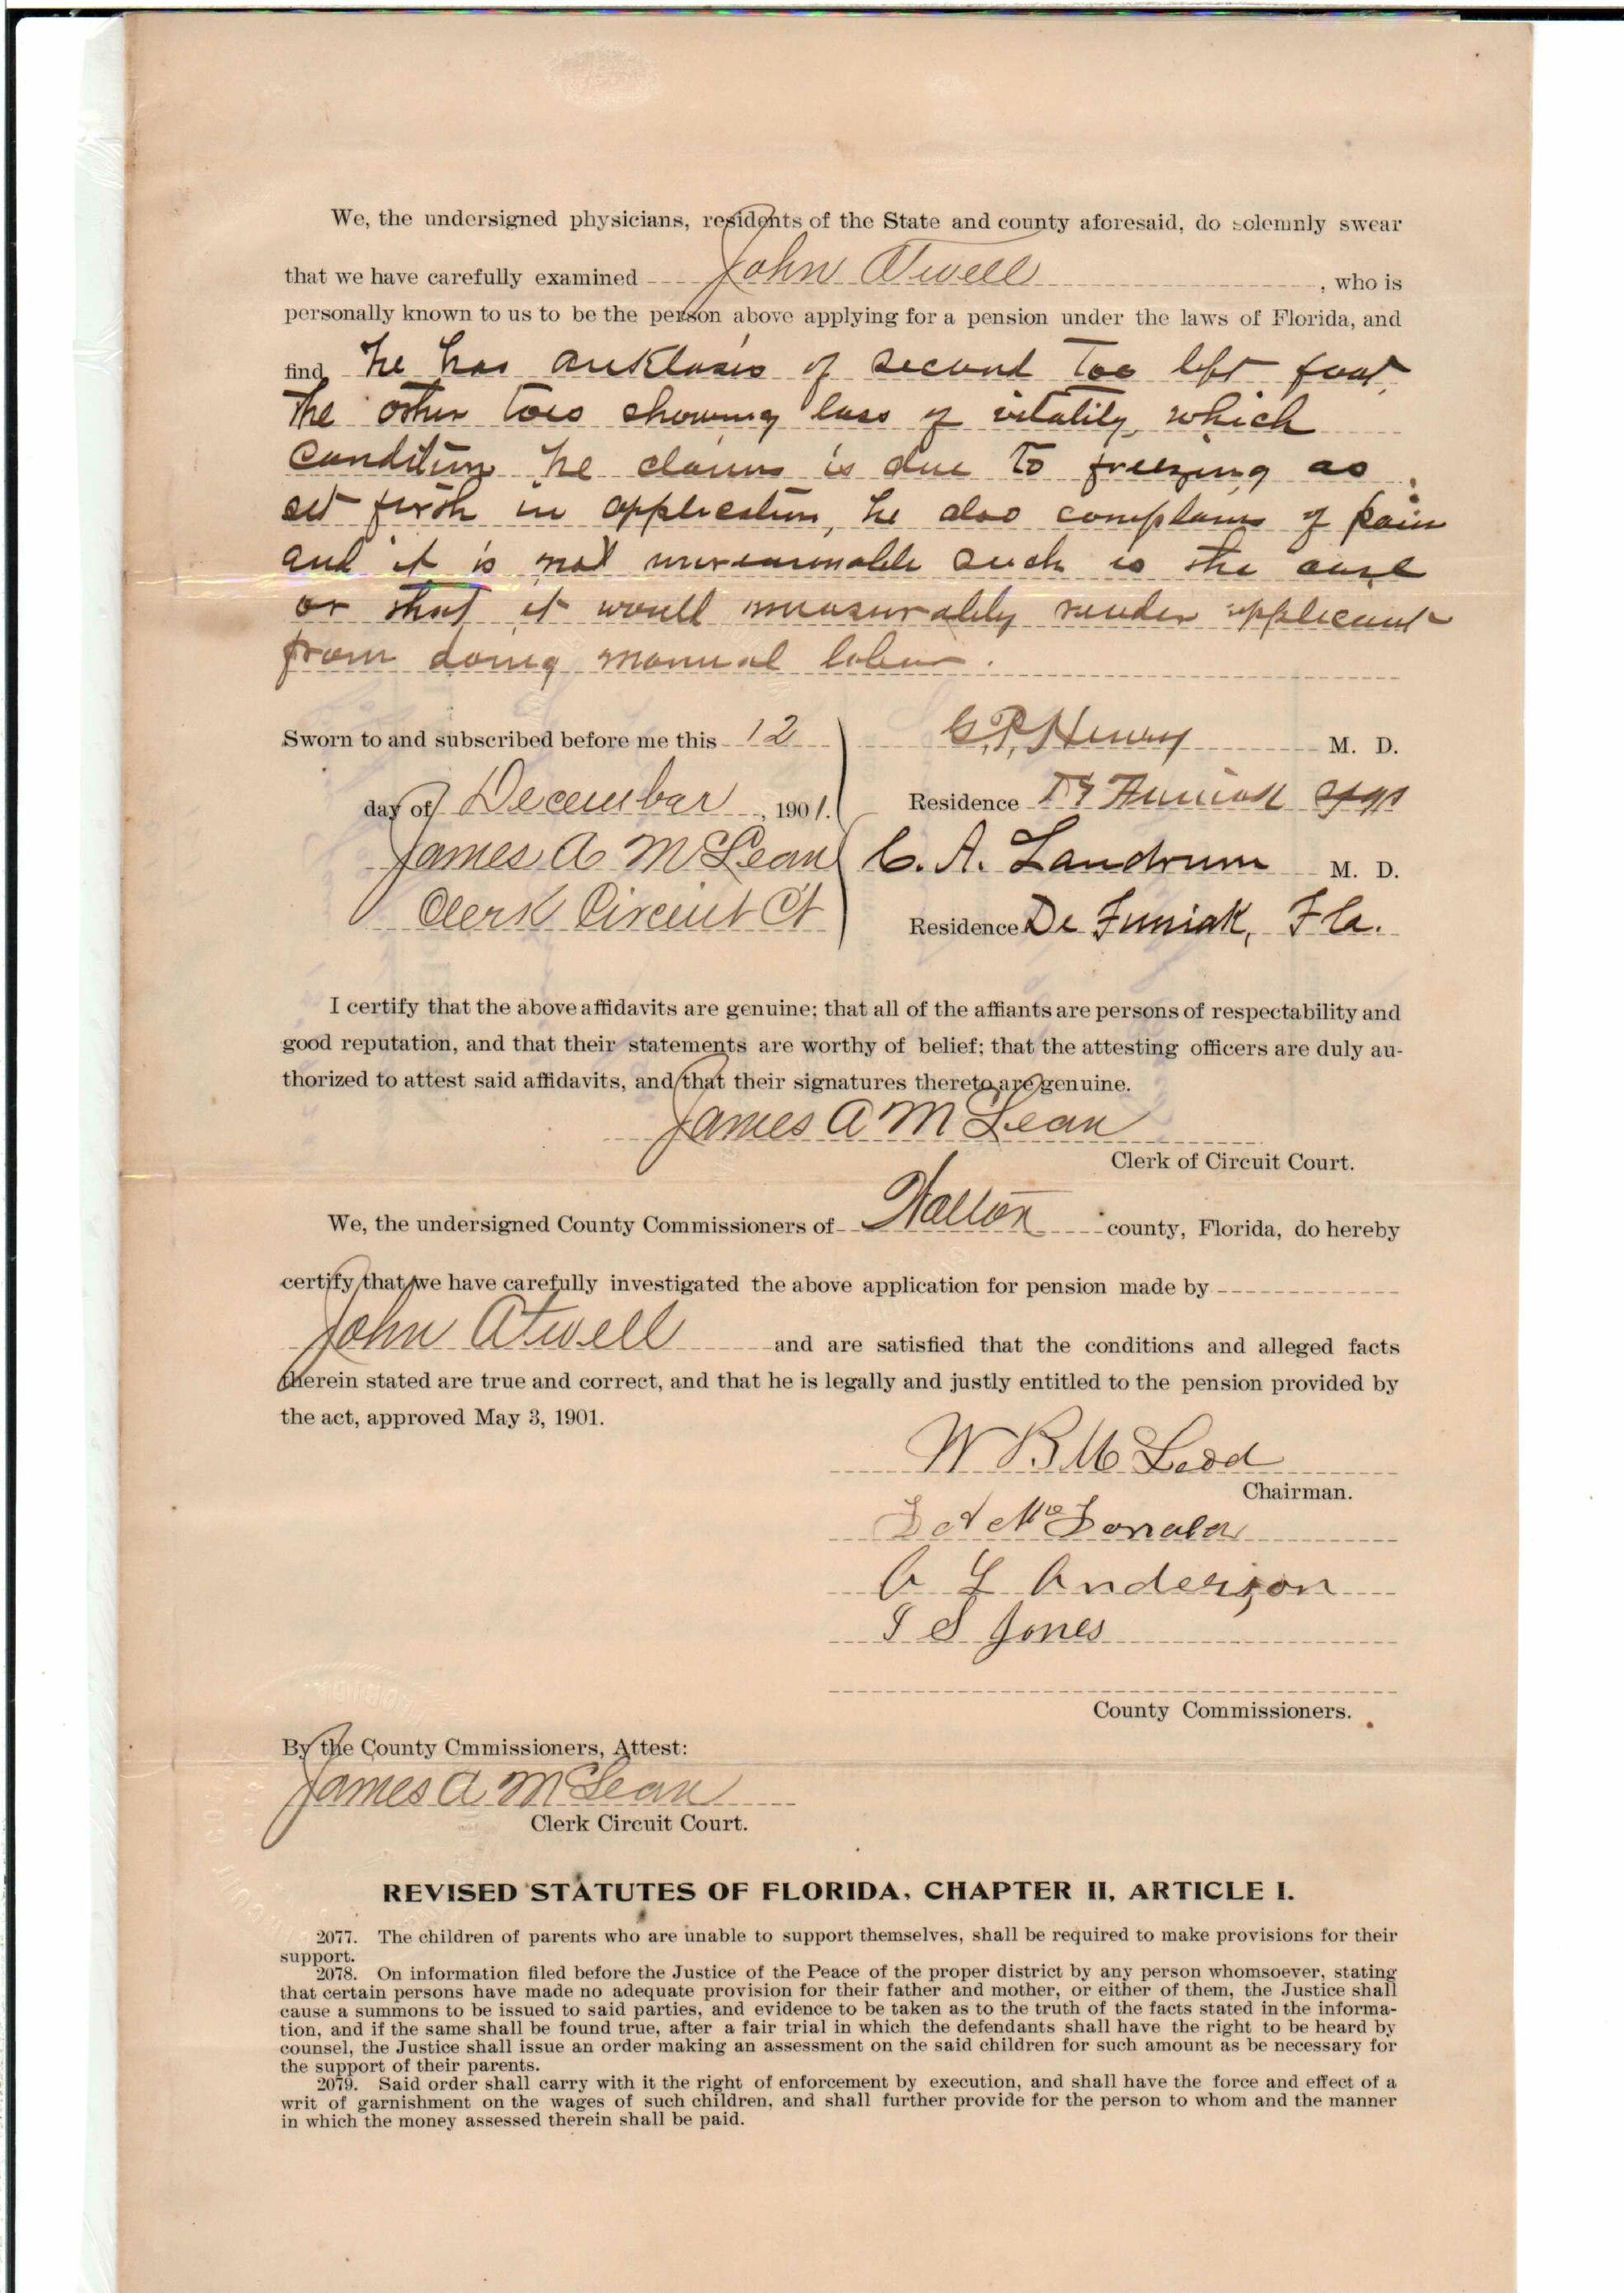 We, the undersigned physicians, residents of the State and county aforesaid, do solemnly swear
that we have carefully examined John Atwell, who is
personally known to us to be the person above applying for a pension under the laws of Florida, and
find he has anklosis of second toe left foot,
the other toes showing loss of vitality, which
condition he claims is due to freezing as
set forth in application, he also complains of pain
and it is not unreasonable such is the case
or that it would measurably render applicant
from doing manual labor.
Sworn to and subscribed before me this 12
day of December, 1901.
James A McLean
Clerk Circuit Ct
C.P. Henry M. D.
Residence De Funiak Spgs
C. A. Landrum M. D.
Residence De Funiak, Fla.
I certify that the above affidavits are genuine; that all of the affiants are persons of respectability and
good reputation, and that their statements are worthy of belief; that the attesting officers are duly au-
thorized to attest said affidavits, and that their signatures thereto are genuine.
James A McLean
Clerk of Circuit Court.
We, the undersigned County Commissioners of Walton county, Florida, do hereby
certify that we have carefully investigated the above application for pension made by
John Atwell and are satisfied that the conditions and alleged facts
therein stated are true and correct, and that he is legally and justly entitled to the pension provided by
the act, approved May 3, 1901.
W B McLeod
Chairman.
D A McDonald
A L Anderson
I S Jones
County Commissioners.
By the County Cmmissioners, Attest:
James A McLean
Clerk Circuit Court.
REVISED STATUTES OF FLORIDA, CHAPTER II, ARTICLE I.
2077. The children of parents who are unable to support themselves, shall be required to make provisions for their
support.
2078. On information filed before the Justice of the Peace of the proper district by any person whomsoever, stating
that certain persons have made no adequate provision for their father and mother, or either of them, the Justice shall
cause a summons to be issued to said parties, and evidence to be taken as to the truth of the facts stated in the informa-
tion, and if the same shall be found true, after a fair trial in which the defendants shall have the right to be heard by
counsel, the Justice shall issue an order making an assessment on the said children for such amount as be necessary for
the support of their parents.
2079. Said order shall carry with it the right of enforcement by execution, and shall have the force and effect of a
writ of garnishment on the wages of such children, and shall further provide for the person to whom and the manner
in which the money assessed therein shall be paid.